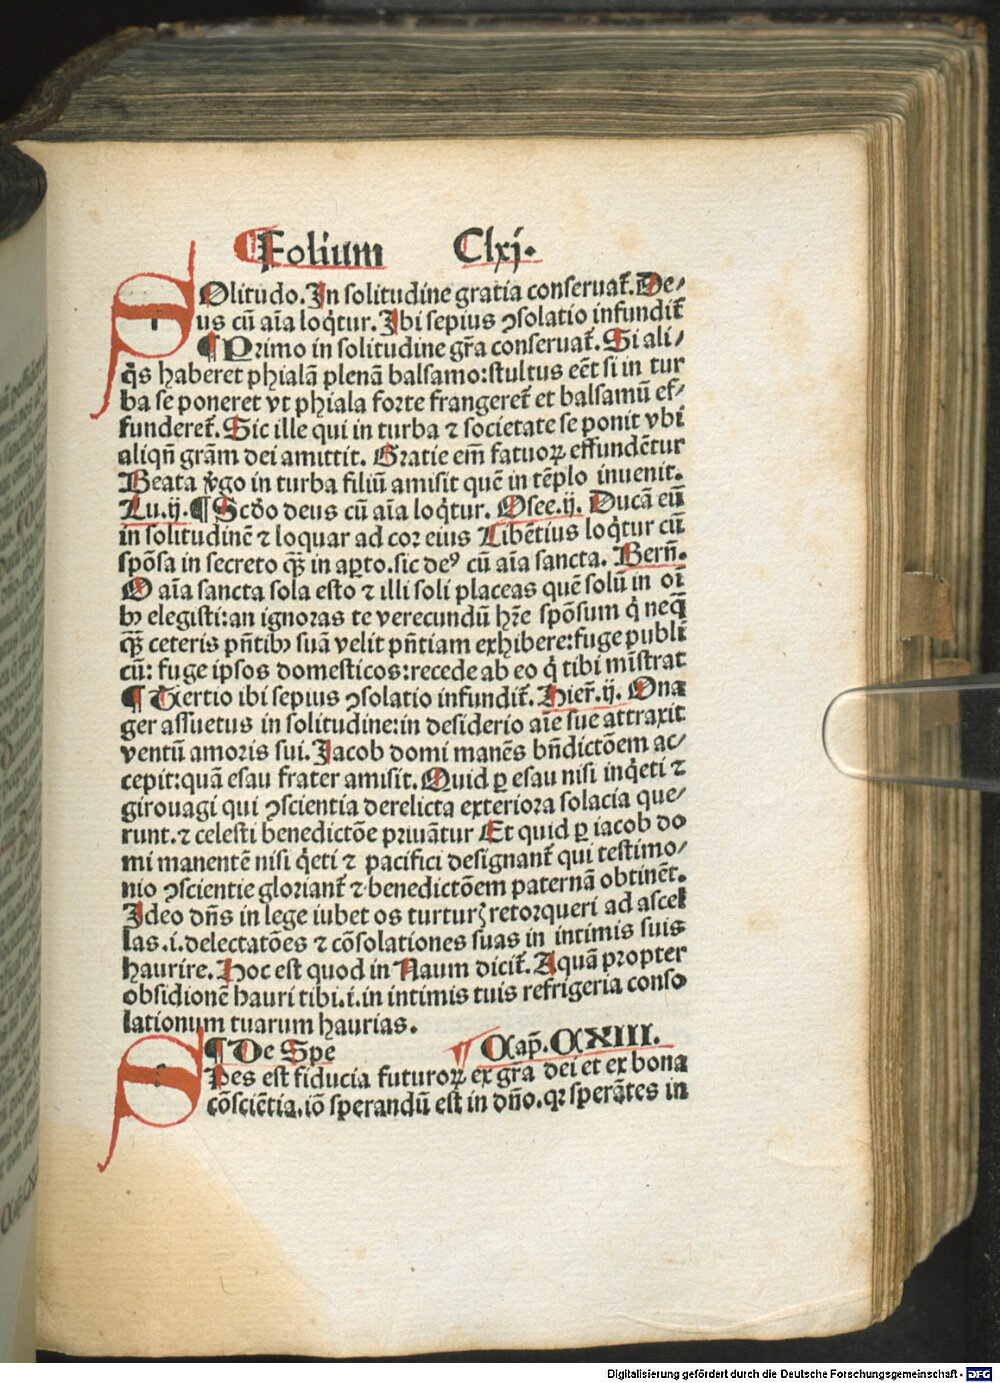 ¶Folium Clxj.
SOlitudo. In solitudine gratia conseruat̃. De⸗
us cũ aĩa loq̃tur. Ibi sepius ꝯsolatio infundit̃
¶ Primo in solitudine gr̃a conseruat̃. Si ali⸗
q̃s haberet phialã plenã balsamo: stultus eẽt si in tur
ba se poneret vt phiala forte frangeret̃ et balsamũ ef⸗
funderet̃. Sic ille qui in turba ⁊ societate se ponit vbi
aliqñ grãm dei amittit. Gratie em̃ fatuoꝝ effundẽtur
Beata ṽgo in turba filiũ amisit quẽ in tẽplo inuenit.
Lu.ij. ¶ Scd̃o deus cũ aĩa loq̃tur. Osee.ij. Ducã eũ
in solitudinẽ ⁊ loquar ad cor eius Libẽtius loq̃tur cũ
spõsa in secreto q̃ꝫ in aꝑto. sic deꝰ cũ aĩa sancta. Berñ.
O aĩa sancta sola esto ⁊ illi soli placeas quẽ solũ in oĩ
bꝫ elegisti: an ignoras te verecundũ hr̃e spõsum q̃ neq̃
q̃ꝫ ceteris pñtibꝫ suã velit pñtiam exhibere: fuge publi
cũ: fuge ipsos domesticos: recede ab eo q̃ tibi mĩstrat
¶ Tertio ibi sepius ꝯsolatio infundit̃. Hier̃.ij. Ona
ger assuetus in solitudine: in desiderio aĩe sue attraxit
ventũ amoris sui. Jacob domi manẽs bñdictõem ac⸗
cepit: quã esau frater amisit. Quid ꝑ esau nisi inq̃eti ⁊
girouagi qui ꝯscientia derelicta exteriora solacia que⸗
runt. ⁊ celesti benedictõe priuãtur Et quid ꝑ iacob do
mi manentẽ nisi q̃eti ⁊ pacifici designant̃ qui testimo⸗
nio ꝯscientie gloriant̃ ⁊ benedictõem paternã obtinẽt.
Ideo dñs in lege iubet os turturꝭ retorqueri ad ascel
las .i. delectatões ⁊ cõsolationes suas in intimis suis
haurire. Hoc est quod in Naum dicit̃. Aquã propter
obsidionẽ hauri tibi .i. in intimis tuis refrigeria conso
lationum tuarum haurias.
¶ De Spe ¶ Cap̃. CXIII.
SPes est fiducia futuroꝝ ex gr̃a dei et ex bona
cõsciẽtia. iõ sperandũ est in dño. qꝛ sperãtes in
Digitalisierung gefördert durch die Deutsche Forschungsgemeinschaft - DFG